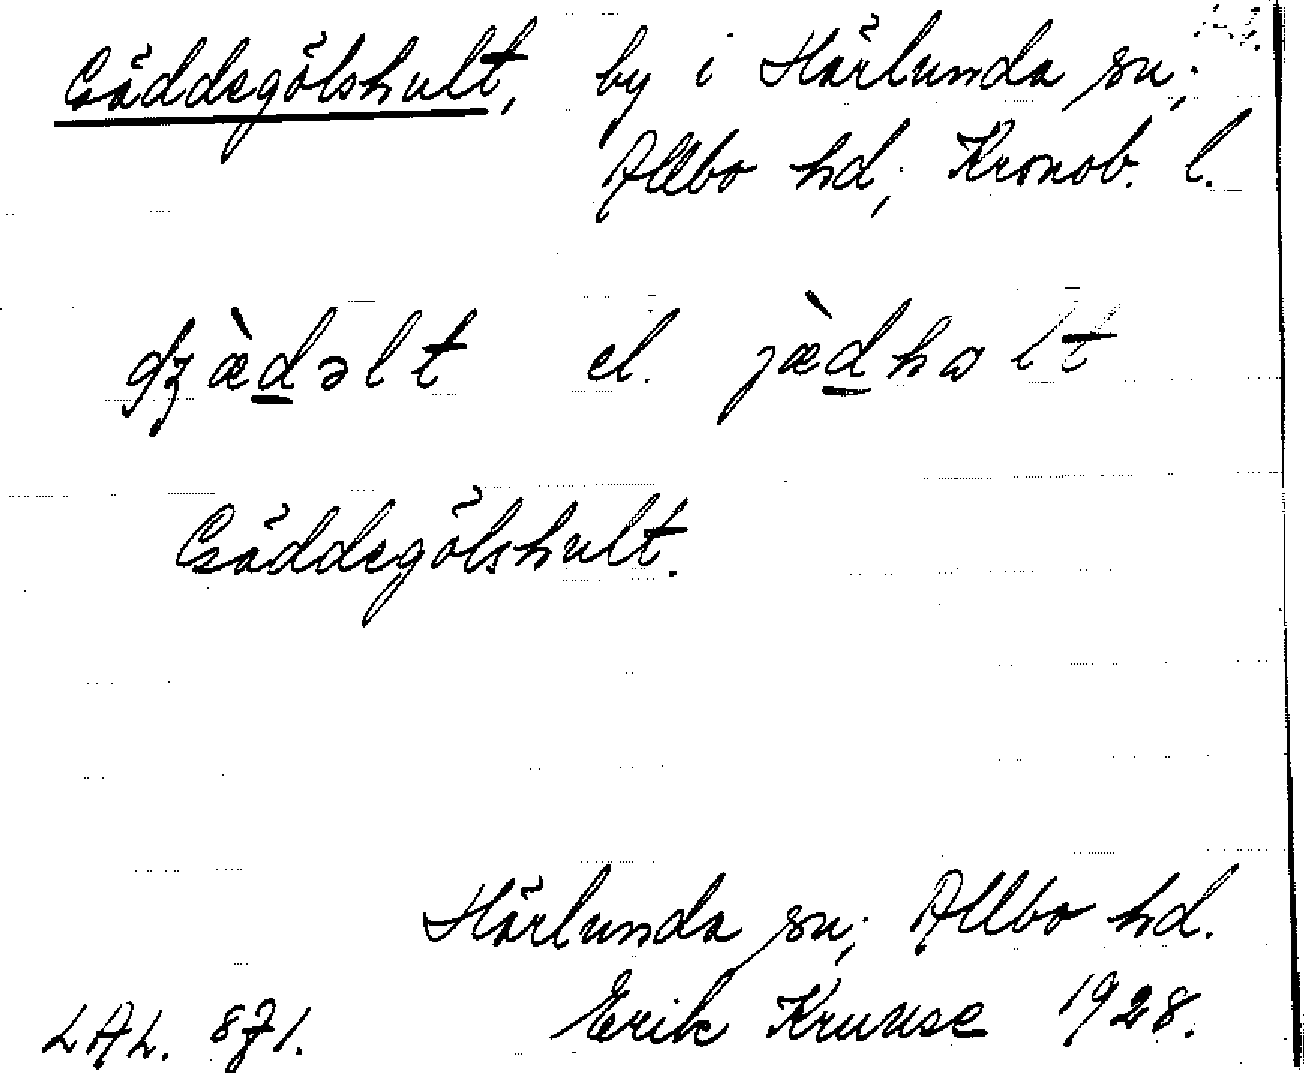 Gäddegölshult, by i Härlunda sn;
Allbo hd; Kronob. l.
dʒæ̀d̲əlt el. jæ̀d̲halt
Gäddegölshult.
Härlunda sn; Allbo hd.
LAL. 871. Erik Kruuse 1928.